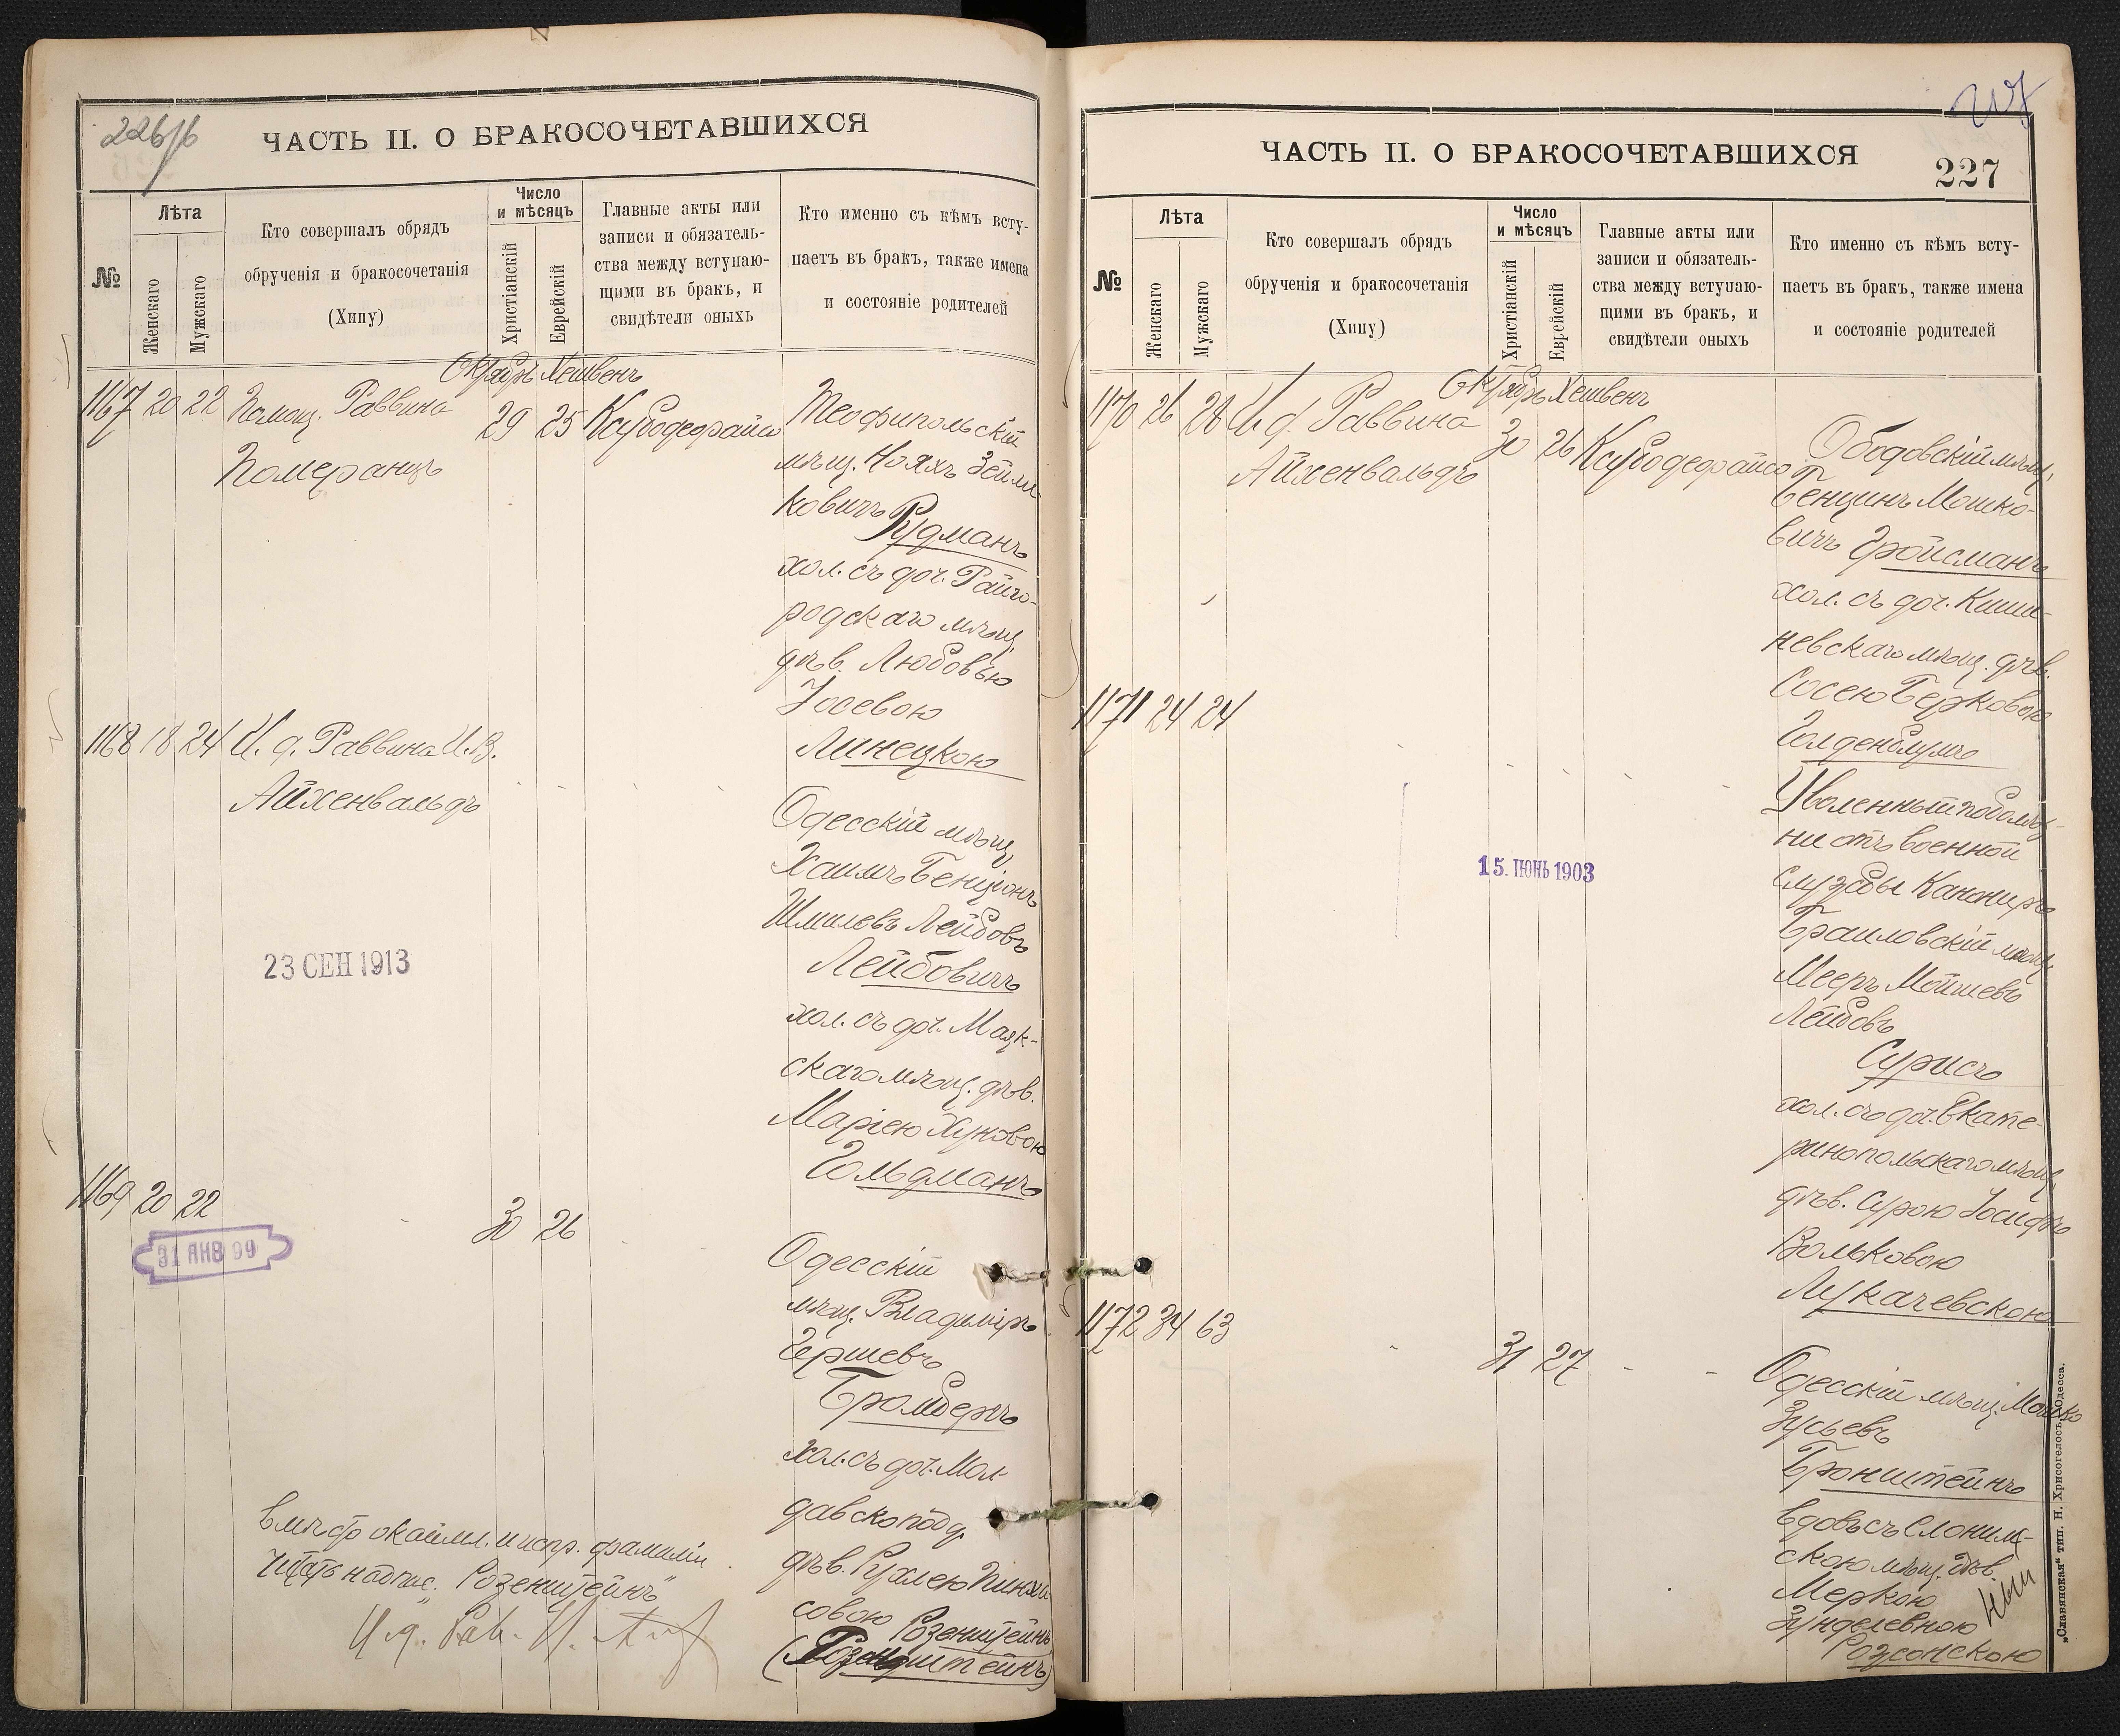 226/б
ЧАСТЬ II. О БРАКОСОЧЕТАВШИХСЯ
№
Лѣта
Женскаго
Мужскаго
Кто совершалъ обрядъ
обрученія и бракосочетанія
(Хипу)
Число
и мѣсяцъ
Христіанскій
Еврейскій
Главные акты или
записи и обязатель-
ства между вступаю-
щими въ бракъ, и
свидѣтели оныхъ
Кто именно съ кѣмъ всту-
паетъ въ бракъ, также имена
и состояніе родителей
Октябрь Хешвенъ
1167 20 22 Помощ. Раввина 29 25
Померанцъ
Теофипольскій
мѣщ. Нояхъ Зейли-
ковичъ
Рудманъ
хол. съ доч. Райго-
родскаго мѣщ.
дѣв. Любовью
Іосевою
Линецкою
1168 18 24 И. д. Раввина И.В.
Айхенвальдъ
Одесскій мѣщ.
Хаимъ Бенціонъ
Шмилевъ Лейбовъ
Лейбовичъ
хол. съ доч. Маяк-
скаго мѣщ. дѣв.
Маріею Хуновою
Гольдманъ
23 СЕН 1913
1169 20 22 30 26
31 ЯНВ 99
Одесскій
мѣщ. Владиміръ
Гершевъ
Бромбергъ
хол. съ доч. Мол-
давско подд.
дѣв. Рухлею Пинха-
совою Розенштейнъ
(Розенштейнъ)
Вмѣсто окаймл. и испр. фамиліи
читать надпис. "Розенштейнъ"
И. д. Рав.
ЧАСТЬ II. О БРАКОСОЧЕТАВШИХСЯ
227
№
Лѣта
Женскаго
Мужскаго
Кто совершалъ обрядъ
обрученія и бракосочетанія
(Хипу)
Число
и мѣсяцъ
Христіанскій
Еврейскій
Главные акты или
записи и обязатель-
ства между вступаю-
щими въ бракъ, и
свидѣтели оныхъ
Кто именно съ кѣмъ всту-
паетъ въ бракъ, также имена
и состояніе родителей
Октябрь Хешвенъ
1170 26 28 И. д. Раввина 30 26
Айхенвальдъ
Ободовскій мѣщ.
Бенцинъ Мошко-
вичъ Гройсманъ
хол. съ доч. Киши-
невскаго мѣщ. дѣв.
Сосею Берковою
Голденблумъ
1171 24 24
Уволенный
отъ военной
службы Канониръ
Браиловскій мѣщ.
Мееръ Мошиевъ
Лейбовъ
Сурисъ
хол. съ доч. Екате-
ринопольскаго мѣщ.
дѣв. Сурою
Вольковою
Лукачевскою
15. ИЮНЬ 1903
1172 34 63 31 27
Одесскій мѣщ. Мошко
Зусьевъ
Бронштейнъ
вдовъ съ Слоним-
скою мѣщ. дѣв.
Меркою
Зунделевною
„Славянская“ тип. Н. Хрисогелосъ, Одесса.